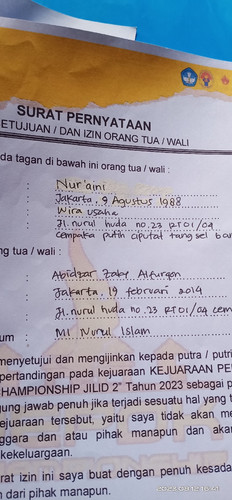 SURAT PERNYATAAN
ETUJUAN / DAN IZIN ORANG TUA / WALI
da tagan di bawah ini orang tua / wali :
: Nur'aini
: Jakarta, 9 Agustus 1988
: Wirausaha
: Jl. nurul huda no. 23 RT01/04
cempaka putih ciputat tangsel ban
ng tua / wali :
: Abidzar Zaky Alfurqon
: Jakarta, 19 februari 2014
: Jl. nurul huda no. 23 RT01/04 cem
um : MI Nurul Islam
menyetujui dan mengijinkan kepada putra / putri
pertandingan pada kejuaraan KEJUARAAN PE
HAMPIONSHIP JILID 2" Tahun 2023 sebagai p
gung jawab penuh jika terjadi sesuatu hal yang t
ejuaraan tersebut, yaitu saya tidak akan me
ggara dan atau pihak manapun dan akan
kekeluargaan.
rat izin ini saya buat dengan penuh kesada
n dari pihak manapun.